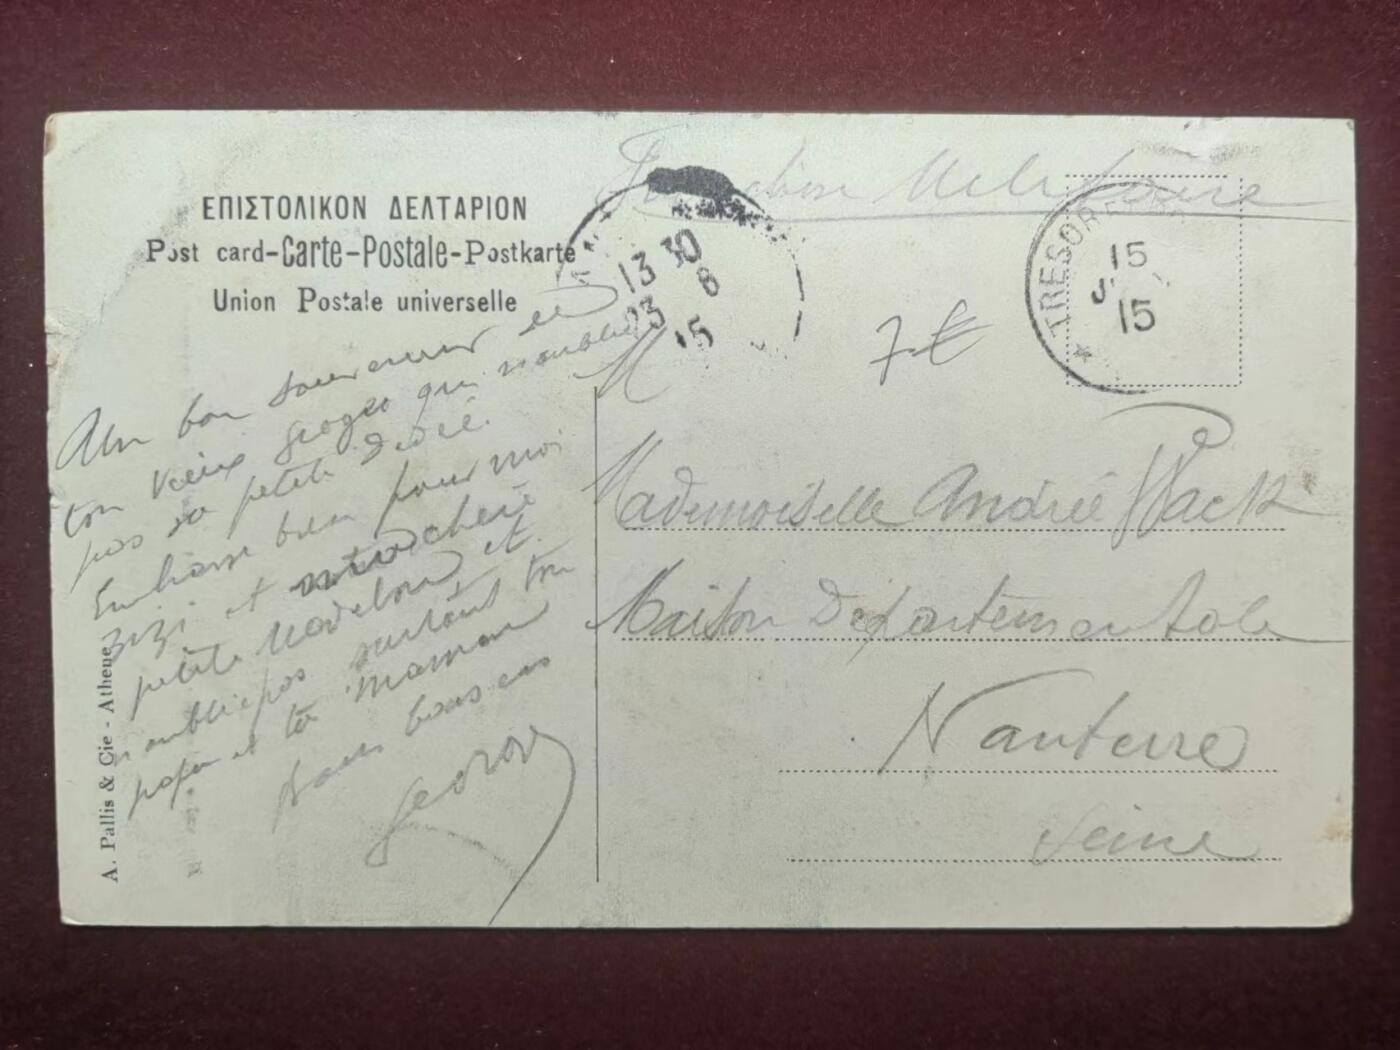 ΕΠΙΣΤΟΛΙΚΟΝ ΔΕΛΤΑΡΙΟΝ
Post card-Carte-Postale-Postkarte
Union Postale universelle
Franchise Militaire
13 30
23 8
15
TRESOR
15
J
15
7€
M
Un bon souvenir de
ton vieux Georges qui n'oublie
pas sa petite Dédé.
Embrasse bien pour moi
zizi et chere
petite Madelon et
n'oublie pas surtout ton
papa et ta maman
bons
Georges
Mademoiselle Andrée
Maison Departementale
Nanterre
Seine
A. Pallis & Cie - Athene